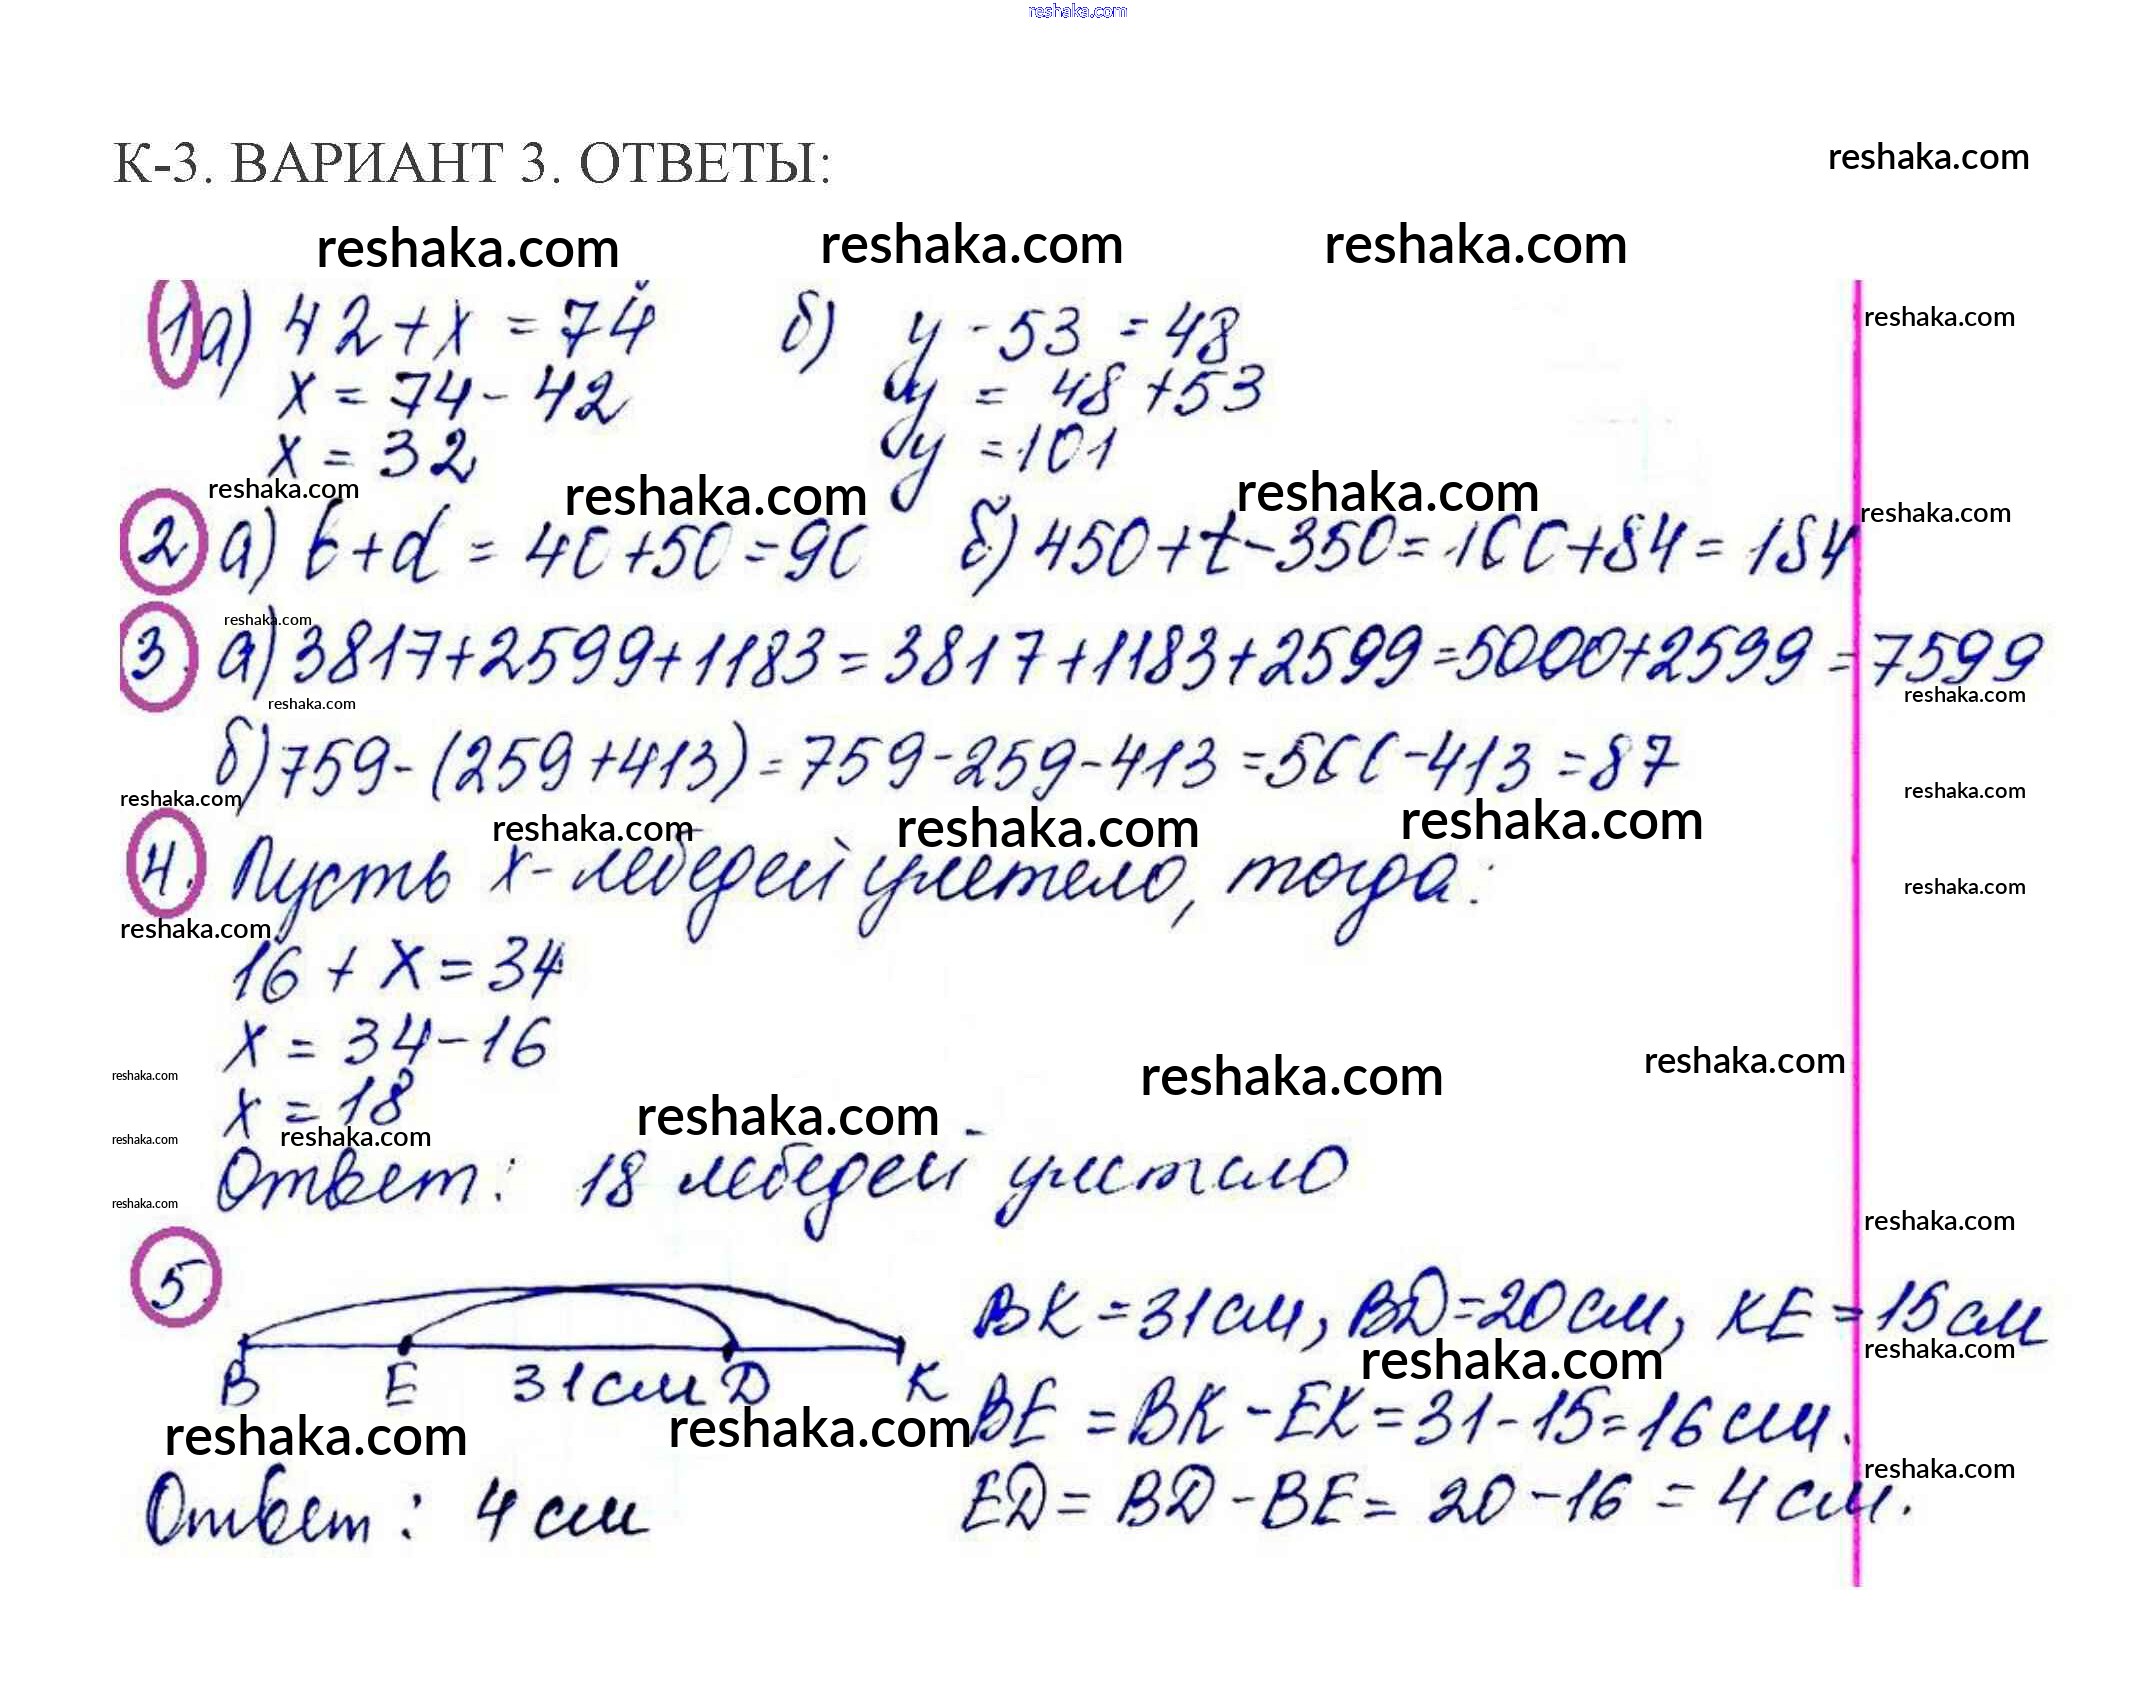 reshaka.com
К-3. ВАРИАНТ 3. ОТВЕТЫ:
reshaka.com
reshaka.com reshaka.com reshaka.com
1 а) 42+x = 74 б) y - 53 = 48
reshaka.com
x = 74 - 42 y = 48 + 53
x = 32 y = 101
reshaka.com reshaka.com reshaka.com
reshaka.com
2 а) b+d = 40+50=90 б) 450+t-350=100+84=184
reshaka.com
3. а) 3817+2599+1183=3817+1183+2599=5000+2599=7599
reshaka.com
reshaka.com
б) 759-(259+413)=759-259-413=500-413=87
reshaka.com reshaka.com
reshaka.com reshaka.com reshaka.com
4. Пусть x- лебедей улетело, тогда:
reshaka.com
reshaka.com
16 + x = 34
x = 34-16
reshaka.com reshaka.com reshaka.com
x = 18
reshaka.com
reshaka.com reshaka.com
Ответ: 18 лебедей улетело
reshaka.com
reshaka.com
5. BK = 31 см, BD=20 см, KE = 15 см
reshaka.com reshaka.com
B E 31 см D K
BE = BK - EK = 31-15=16 см.
reshaka.com reshaka.com
reshaka.com
ED = BD - BE = 20 - 16 = 4 см.
Ответ: 4 см